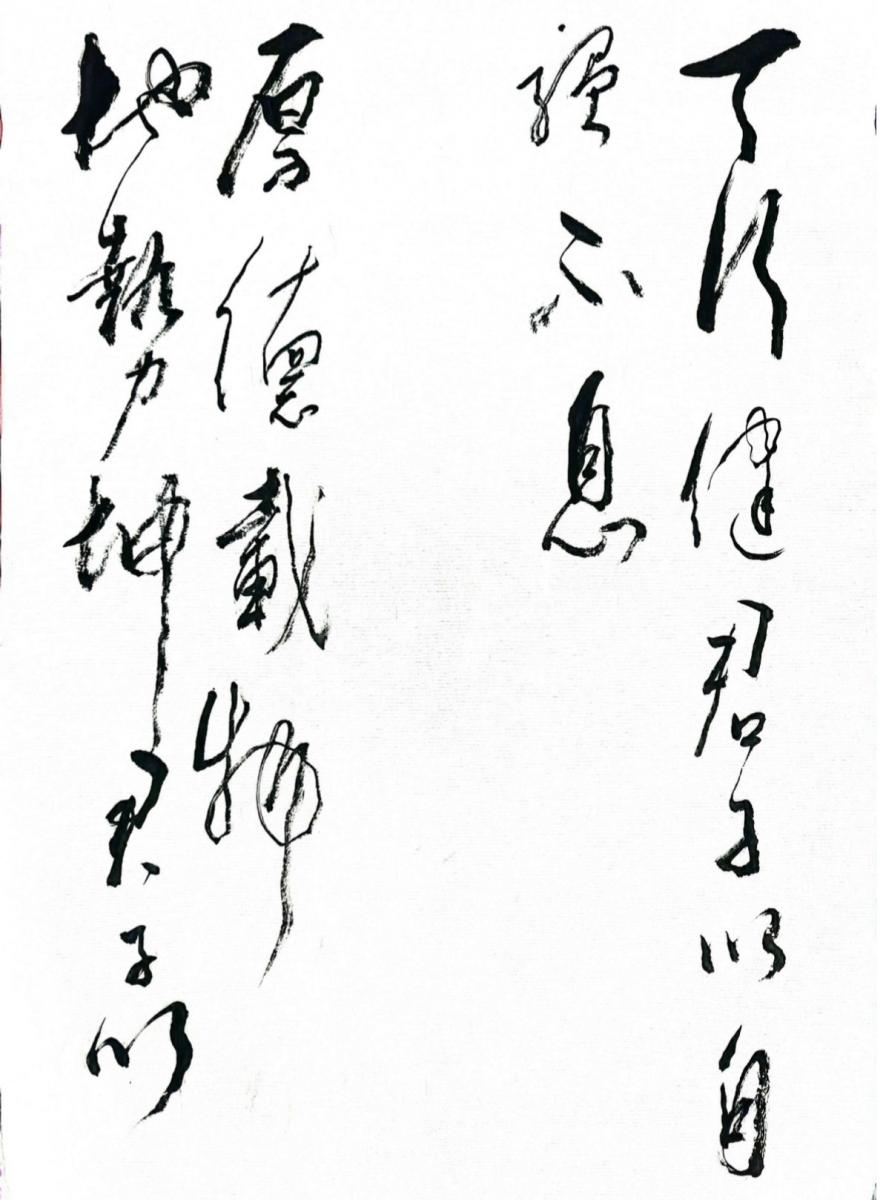 天行健君子以自
彊不息
地勢坤君子以
厚德載物